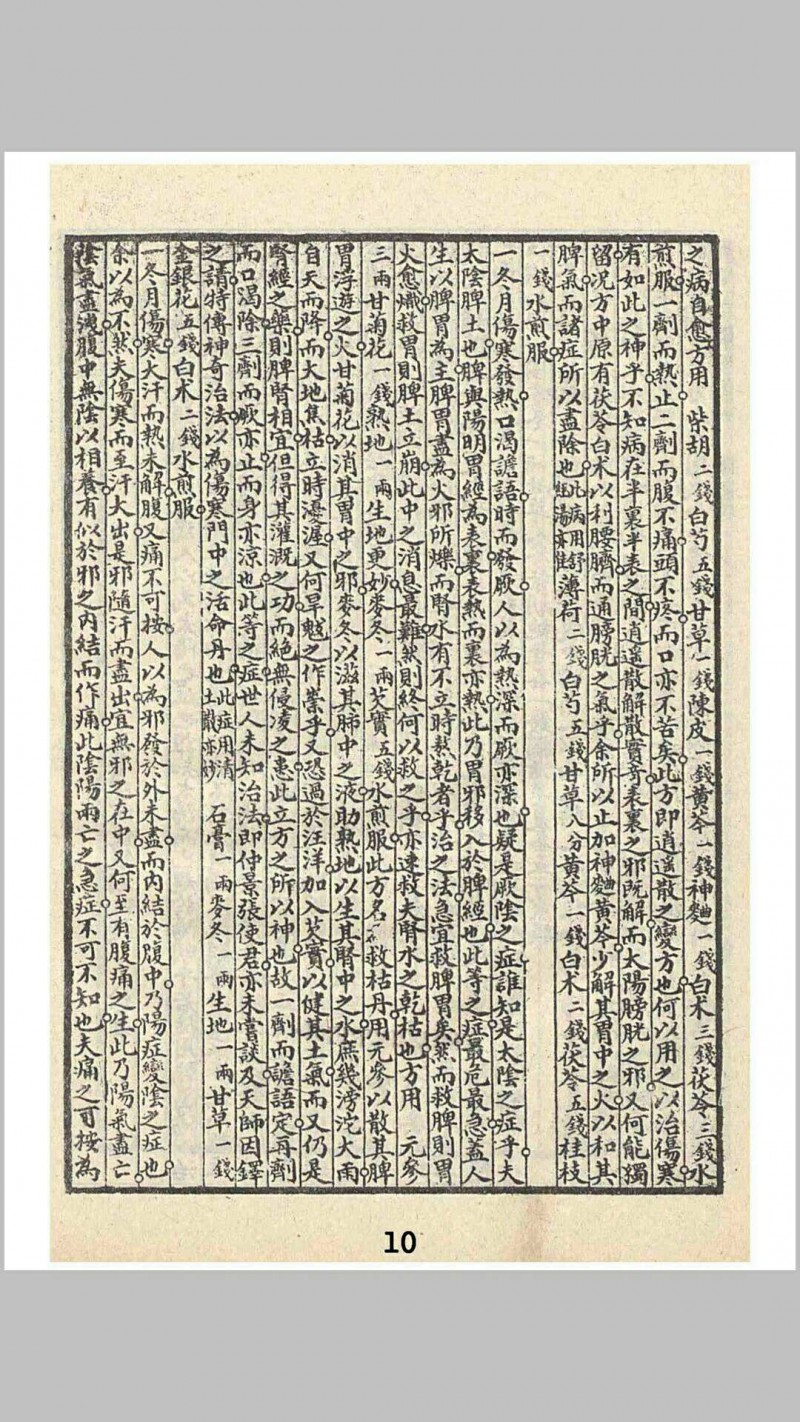 之病自愈方用 柴胡二錢白芍五錢甘草一錢陳皮一錢黃芩一錢神麯一錢白朮三錢茯苓三錢水
煎服一劑而熱止二劑而腹不痛頭不疼而口亦不苦矣此方即逍遙散之變方也何以用之以治傷寒
有如此之神乎不知病在半裏半表之間逍遙散解散實奇表裏之邪既解而太陽膀胱之邪又何能獨
留況方中原有茯苓白朮以利腰臍而通膀胱之氣乎余所以止加神麯黃芩少解其胃中之火以和其
脾氣而諸症所以盡除也此病用舒湯亦佳薄荷二錢白芍五錢甘草八分黃芩一錢白朮二錢茯苓五錢桂枝
一錢水煎服
一冬月傷寒發熱口渴譫語時而發厥人以為熱深而厥亦深也疑是厥陰之症誰知是太陰之症乎夫
太陰脾土也脾與陽明胃經為表裏表熱而裏亦熱此乃胃邪移入於脾經也此等之症最危最急蓋人
生以脾胃為主脾胃盡為火邪所爍而腎水有不立時熬乾者乎治之法急宜救脾胃矣然而救脾則胃
火愈熾救胃則脾土立崩此中之消息最難然則終何以救之乎亦速救夫腎水之乾枯也方用 元參
三兩甘菊花一錢熟地一兩生地更妙麥冬一兩芡實五錢水煎服此方名為救枯丹用元參以散其脾
胃浮遊之火甘菊花以消其胃中之邪麥冬以滋其肺中之液助熟地以生其腎中之水庶幾滂沱大雨
自天而降而大地焦枯立時優渥又何旱魃之作祟乎又恐過於汪洋加入芡實以健其土氣而又仍是
腎經之藥則脾腎相宜但得其灌溉之功而絕無侵凌之患此立方之所以神也故一劑而譫語定再劑
而口渴除三劑而厥亦止而身亦涼也此等之症世人未知治法即仲景張使君亦未嘗談及天師因鐸
之請特傳神奇治法以為傷寒門中之活命丹也此症用清土散亦妙 石膏一兩麥冬一兩生地一兩甘草一錢
金銀花五錢白朮二錢水煎服
一冬月傷寒大汗而熱未解腹又痛不可按人以為邪發於外未盡而內結於腹中乃陽症變陰之症也
余以為不然夫傷寒而至汗大出是邪隨汗而盡出宜無邪之在中又何至有腹痛之生此乃陽氣盡亡
陰氣盡洩腹中無陰以相養有似於邪之內結而作痛此陰陽兩亡之急症不可不知也夫痛之可按為